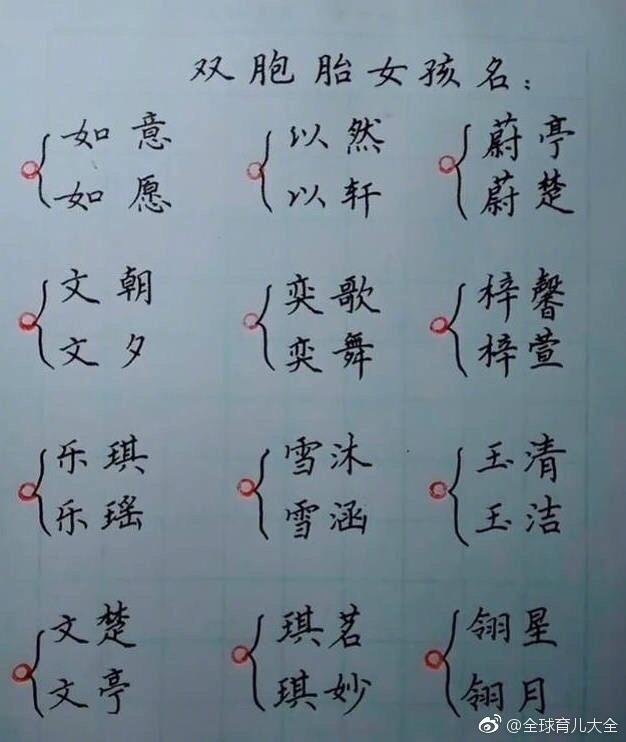 双胞胎女孩名：
如意 以然 蔚亭
如愿 以轩 蔚楚
文朝 奕歌 梓馨
文夕 奕舞 梓萱
乐琪 雪沐 玉清
乐瑶 雪涵 玉洁
文楚 琪茗 翎星
文亭 琪妙 翎月
@全球育儿大全